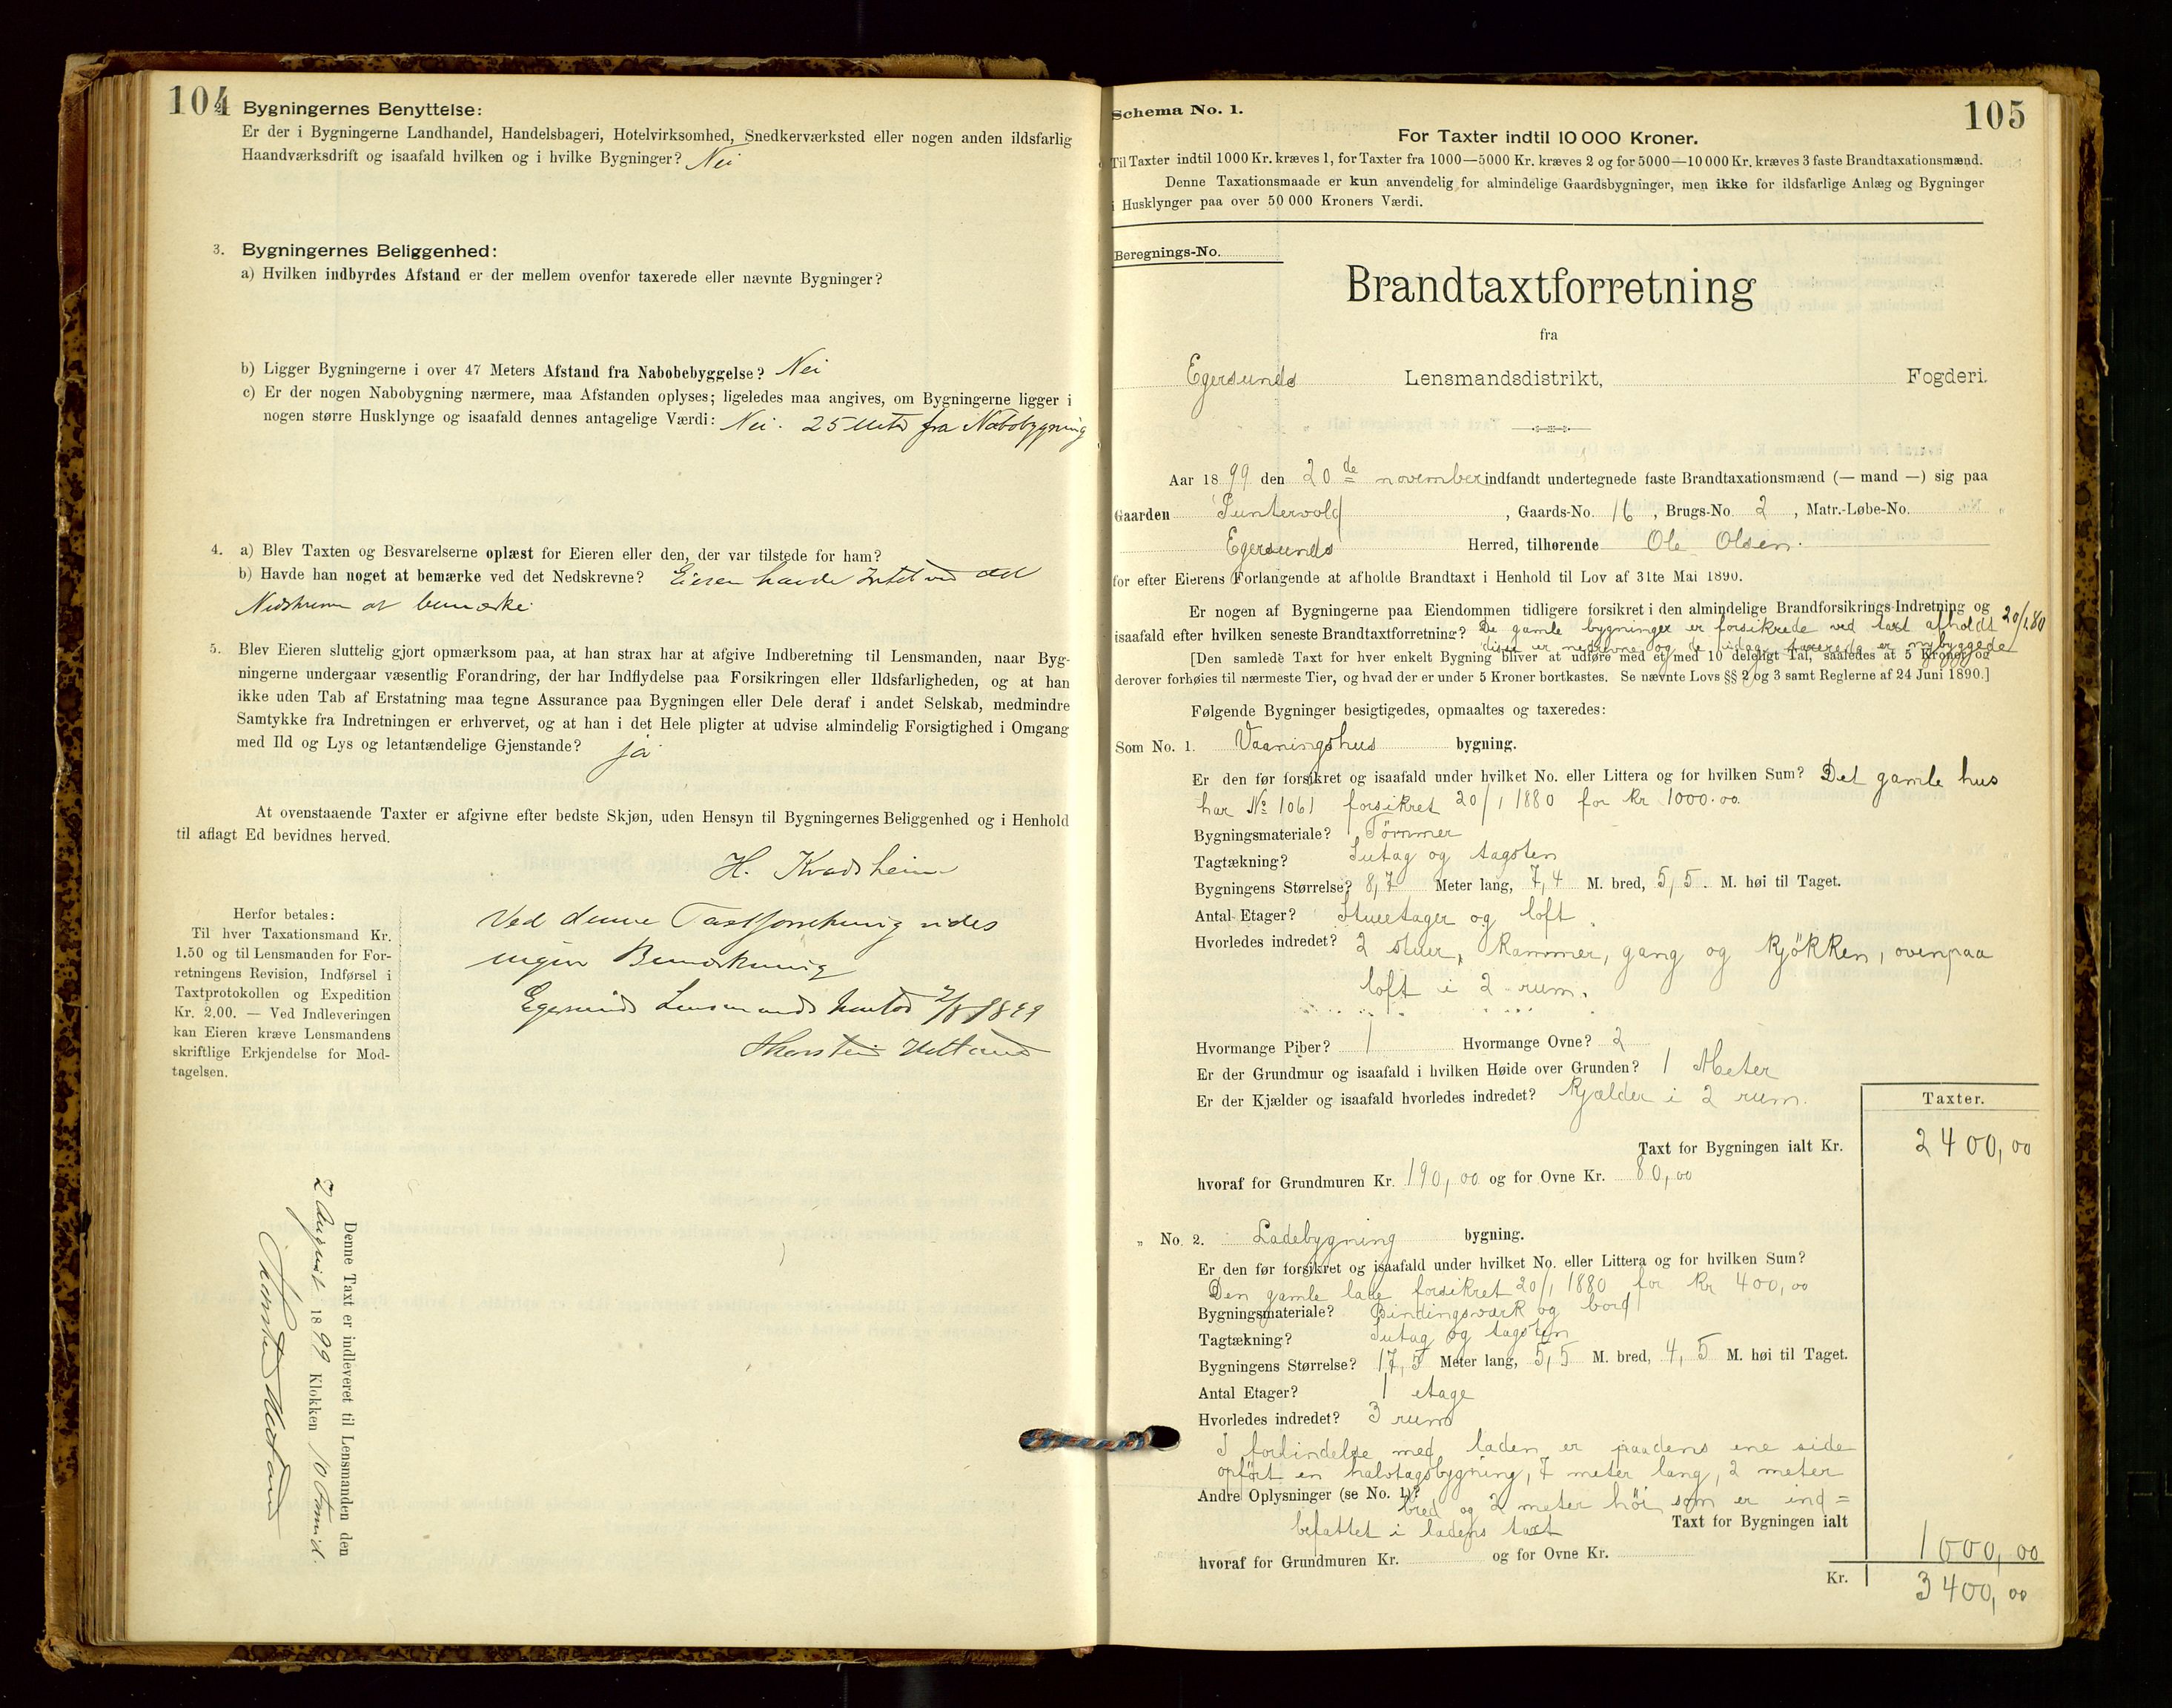 104
Bygningernes Benyttelse:
Er der i Bygningerne Landhandel, Handelsbageri, Hotelvirksomhed, Snedkerværksted eller nogen anden ildsfarlig
Haandværksdrift og isaafald hvilken og i hvilke Bygninger? Nei
3. Bygningernes Beliggenhed:
a) Hvilken indbyrdes Afstand er der mellem ovenfor taxerede eller nævnte Bygninger?
b) Ligger Bygningerne i over 47 Meters Afstand fra Nabobebyggelse? Nei
c) Er der nogen Nabobygning nærmere, maa Afstanden oplyses; ligeledes maa angives, om Bygningerne ligger i
nogen større Husklynge og isaafald dennes antagelige Værdi: Nei. 25 Meter fra Nabobygning
4. a) Blev Taxten og Besvarelserne oplæst for Eieren eller den, der var tilstede for ham?
b) Havde han noget at bemærke ved det Nedskrevne? Eieren havde Intet ved det
Nedskrevne at bemærke.
5. Blev Eieren sluttelig gjort opmærksom paa, at han strax har at afgive Indberetning til Lensmanden, naar Byg-
ningerne undergaar væsentlig Forandring, der har Indflydelse paa Forsikringen eller Ildsfarligheden, og at han
ikke uden Tab af Erstatning maa tegne Assurance paa Bygningen eller Dele deraf i andet Selskab, medmindre
Samtykke fra Indretningen er erhvervet, og at han i det Hele pligter at udvise almindelig Forsigtighed i Omgang
med Ild og Lys og letantændelige Gjenstande? ja
At ovenstaaende Taxter er afgivne efter bedste Skjøn, uden Hensyn til Bygningernes Beliggenhed og i Henhold
til aflagt Ed bevidnes herved.
H. Kvadsheim
Herfor betales:
Til hver Taxationsmand Kr.
1.50 og til Lensmanden for For-
retningens Revision, Indførsel i
Taxtprotokollen og Expedition
Kr. 2.00. — Ved Indleveringen
kan Eieren kræve Lensmandens
skriftlige Erkjendelse for Mod-
tagelsen.
Ved denne Taxtforretning vides
ingen Bemærkning
Egersunds Lensmandskontor 2/8 1899
Thorstein
Denne Taxt er indleveret til Lensmanden den
2 August 1899 Klokken 10 Formid.
Thorstein
105
Schema No. 1.
For Taxter indtil 10 000 Kroner.
Til Taxter indtil 1000 Kr. kræves 1, for Taxter fra 1000—5000 Kr. kræves 2 og for 5000—10 000 Kr. kræves 3 faste Brandtaxationsmænd.
Denne Taxationsmaade er kun anvendelig for almindelige Gaardsbygninger, men ikke for ildsfarlige Anlæg og Bygninger
i Husklynger paa over 50 000 Kroners Værdi.
Beregnings-No.
Brandtaxtforretning
fra
Egersunds Lensmandsdistrikt, Fogderi.
Aar 1899 den 20de november indfandt undertegnede faste Brandtaxationsmænd (— mand —) sig paa
Gaarden Puntervold, Gaards-No. 16, Brugs-No. 2, Matr.-Løbe-No.
Egersunds Herred, tilhørende Ole Olsen.
for efter Eierens Forlangende at afholde Brandtaxt i Henhold til Lov af 31te Mai 1890.
Er nogen af Bygningerne paa Eiendommen tidligere forsikret i den almindelige Brandforsikrings-Indretning og
isaafald efter hvilken seneste Brandtaxtforretning? De gamle bygninger er forsikrede ved taxt afholdt 20/1.80
disse er nedrevne og de idag taxerede er nybyggede
[Den samlede Taxt for hver enkelt Bygning bliver at udføre med et med 10 deleligt Tal, saaledes at 5 Kroner og
derover forhøies til nærmeste Tier, og hvad der er under 5 Kroner bortkastes. Se nævnte Lovs §§ 2 og 3 samt Reglerne af 24 Juni 1890.]
Følgende Bygninger besigtigedes, opmaaltes og taxeredes:
Som No. 1. Vaaningshus bygning.
Er den før forsikret og isaafald under hvilket No. eller Littera og for hvilken Sum? Det gamle hus
har No 1061 forsikret 20/1 1880 for kr 1000.00
Bygningsmateriale? Tömmer
Tagtækning? Sutag og tagsten
Bygningens Størrelse? 8,7 Meter lang, 7,4 M. bred, 5,5. M. høi til Taget.
Antal Etager? Stueetager og loft.
Hvorledes indredet? 2 stuer, kammer, gang og kjökken, ovenpaa
loft i 2 rum.
Hvormange Piber? 1 Hvormange Ovne? 2
Er der Grundmur og isaafald i hvilken Høide over Grunden? 1 Meter
Er der Kjælder og isaafald hvorledes indredet? Kjælder i 2 rum.
Taxter.
Taxt for Bygningen ialt Kr. 2400,00
hvoraf for Grundmuren Kr. 190,00 og for Ovne Kr. 80,00
„ No. 2. Ladebygning bygning.
Er den før forsikret og isaafald under hvilket No. eller Littera og for hvilken Sum?
Den gamle lade forsikret 20/1 1880 for kr 400,00
Bygningsmateriale? Bindingsværk og bord
Tagtækning? Sutag og tagsten
Bygningens Størrelse? 17,5 Meter lang, 5,5 M. bred, 4,5 M. høi til Taget.
Antal Etager? 1 etage
Hvorledes indredet? 3 rum
I forbindelse med laden er paa dens ene side
opfört en halvtagsbygning, 7 meter lang, 2 meter
Andre Oplysninger (se No. 1)? bred og 2 meter höi som er ind=
befattet i ladens taxt Taxt for Bygningen ialt 1000,00
hvoraf for Grundmuren Kr. og for Ovne Kr.
Kr. 3400,00